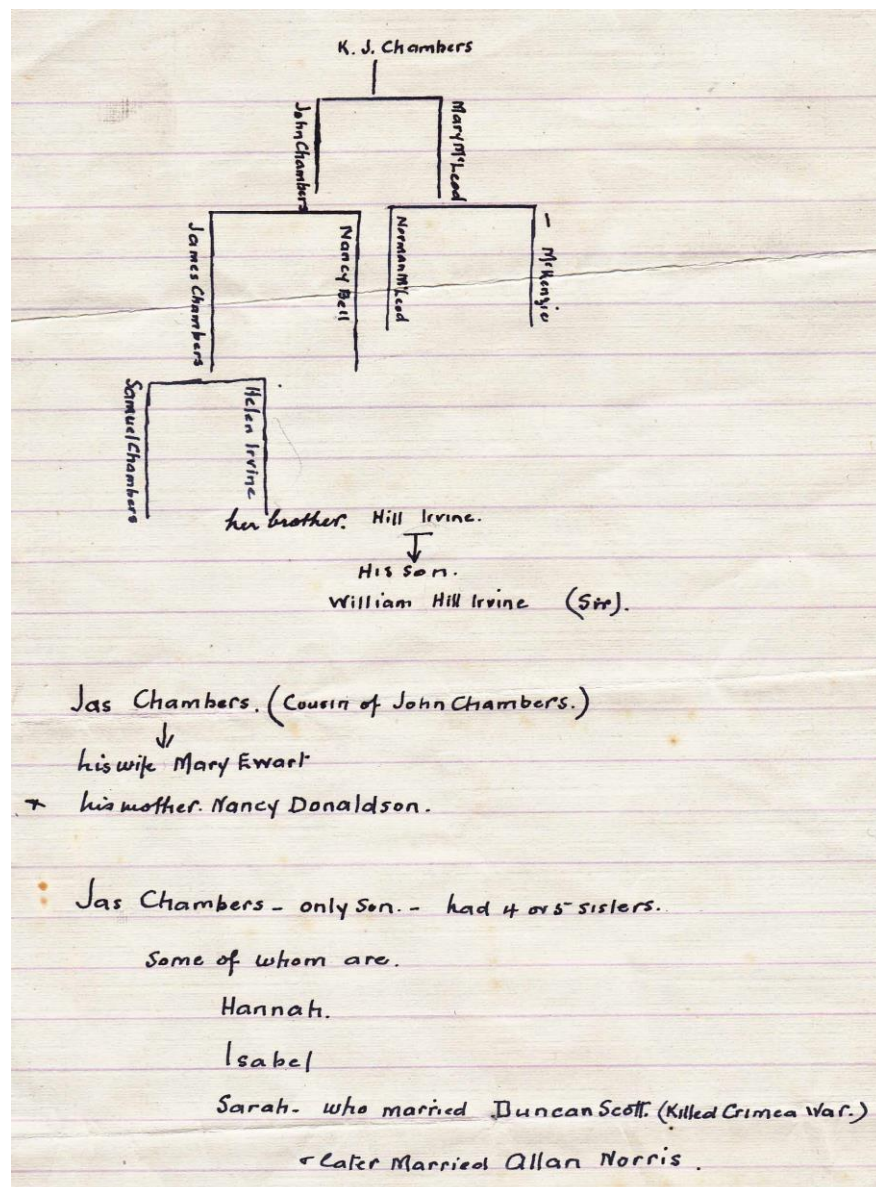 K. J. Chambers
John Chambers
Mary McLeod
James Chambers
Nancy Bell
Norman McLeod
- McKenzie
Samuel Chambers
Helen Irvine
her brother. Hill Irvine.
His son.
William Hill Irvine (Sir).
Jas Chambers. (Cousin of John Chambers.)
his wife Mary Ewart
* his mother. Nancy Donaldson.
Jas Chambers - only son. - had 4 or 5 sisters.
Some of whom are.
Hannah.
Isabel
Sarah - who married Duncan Scott. (Killed Crimea War.)
- later Married Allan Norris.